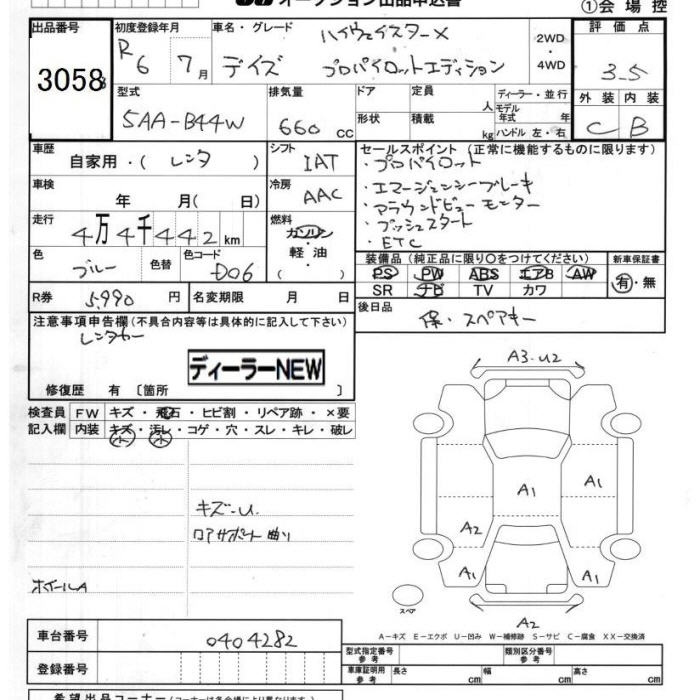 オークション出品申込書
①会場控
出品番号 初度登録年月 車名・グレード ハイウェイスターX 2WD ・ 4WD 評価点
3058 R6 7月 デイズ プロパイロットエディション 3.5
型式 排気量 ドア 定員 人 ディーラー・並行 外装 内装
5AA-B44W 660 CC 形状 積載 kg モデル年式 年 ハンドル 左・右 C B
車歴 自家用・(レンタ) シフト IAT セールスポイント(正常に機能するものに限ります)
・プロパイロット
車検 年 月(日) 冷房 AAC ・エマージェンシーブレーキ
・アラウンドビューモニター
走行 4万4千442km 燃料 ガソリン ・プッシュスタート
軽油 ・ETC
( )
色 ブルー 色替 色コード D06 装備品(純正品に限り○をつけてください) 新車保証書
PS PW ABS エアB AW 有・無
SR ナビ TV カワ
R券 5,990円 名変期限 月 日 後日品 保・スペアキー
注意事項申告欄(不具合内容等は具体的に記入して下さい)
レンタカー
ディーラーNEW
修復歴 有 〔箇所 〕
検査員 FW キズ・飛石・ヒビ割・リペア跡・×要
記入欄 内装 キズ・汚レ・コゲ・穴・スレ・キレ・破レ
小 小
A3-U2
キズ-U
ロアサポート曲り
A1
A1
A2
A1
A1
ホイールA
スペア
A2
A-キズ E-エクボ U-凹み W-補修跡 S-サビ C-腐食 XX-交換済
車台番号 0404282
型式指定番号 参考 類別区分番号 参考
登録番号 車庫証明用 参考 長さ cm 幅 cm 高さ cm
希望出品コーナー(コーナーは各会場により異なります)